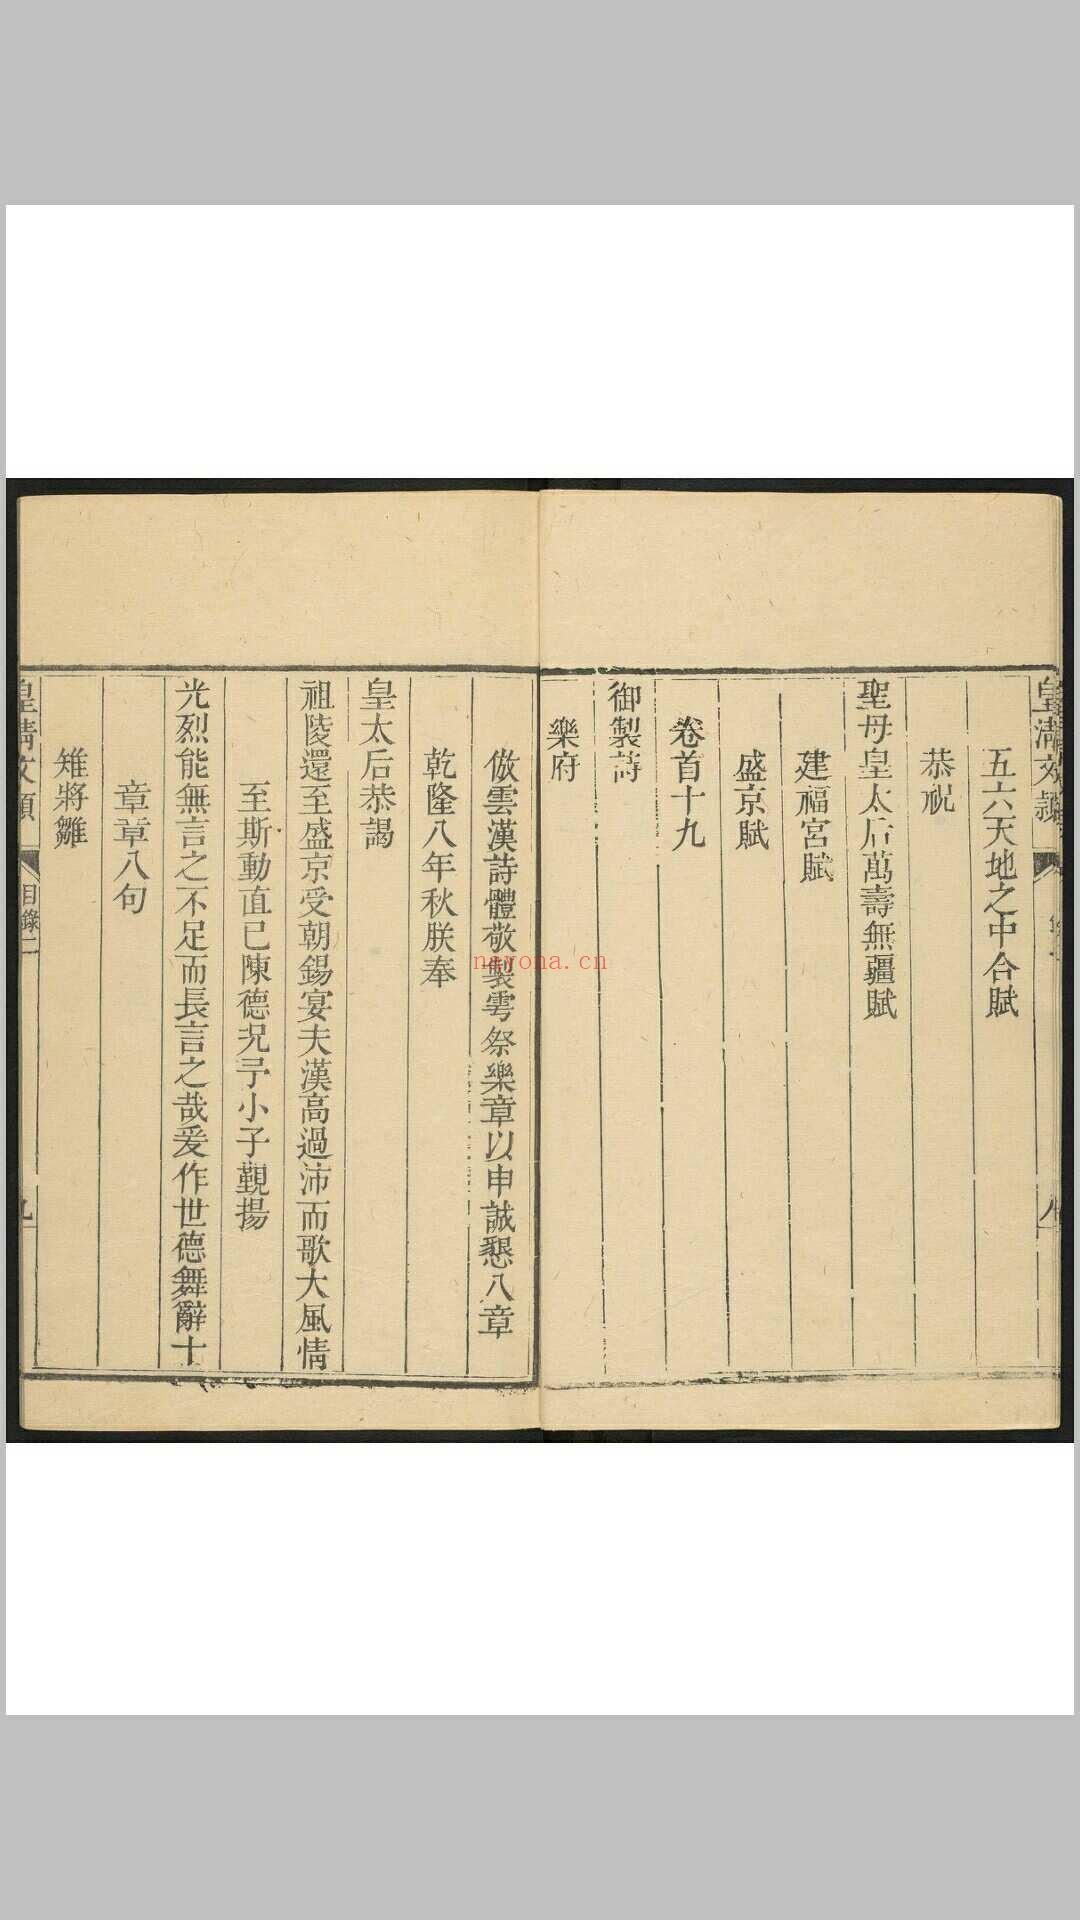 皇清文穎
五六天地之中合賦
恭祝
聖母皇太后萬壽無疆賦
建福宮賦
盛京賦
卷首十九
御製詩
樂府
倣雲漢詩體敬製雩祭樂章以申誠懇八章
乾隆八年秋朕奉
皇太后恭謁
祖陵還至盛京受朝錫宴夫漢高過沛而歌大風情
至斯動直已陳德况予小子覲揚
光烈能無言之不足而長言之哉爰作世德舞辭十
章章八句
雉將雛
皇清文穎
目錄二
九
nayona.cn